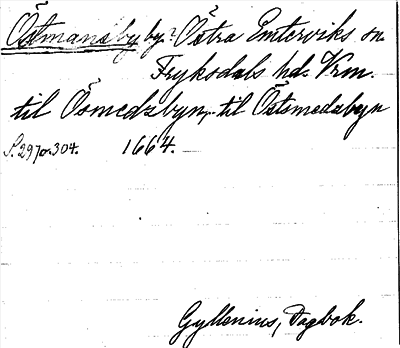 Östmansby by? Östra Emterviks sn
Fryksdals hd. Vrm.
til Ösmedzbÿn, til Östsmedzbyn
S. 297 o. 304. 1664.
Gyllenius, Dagbok.